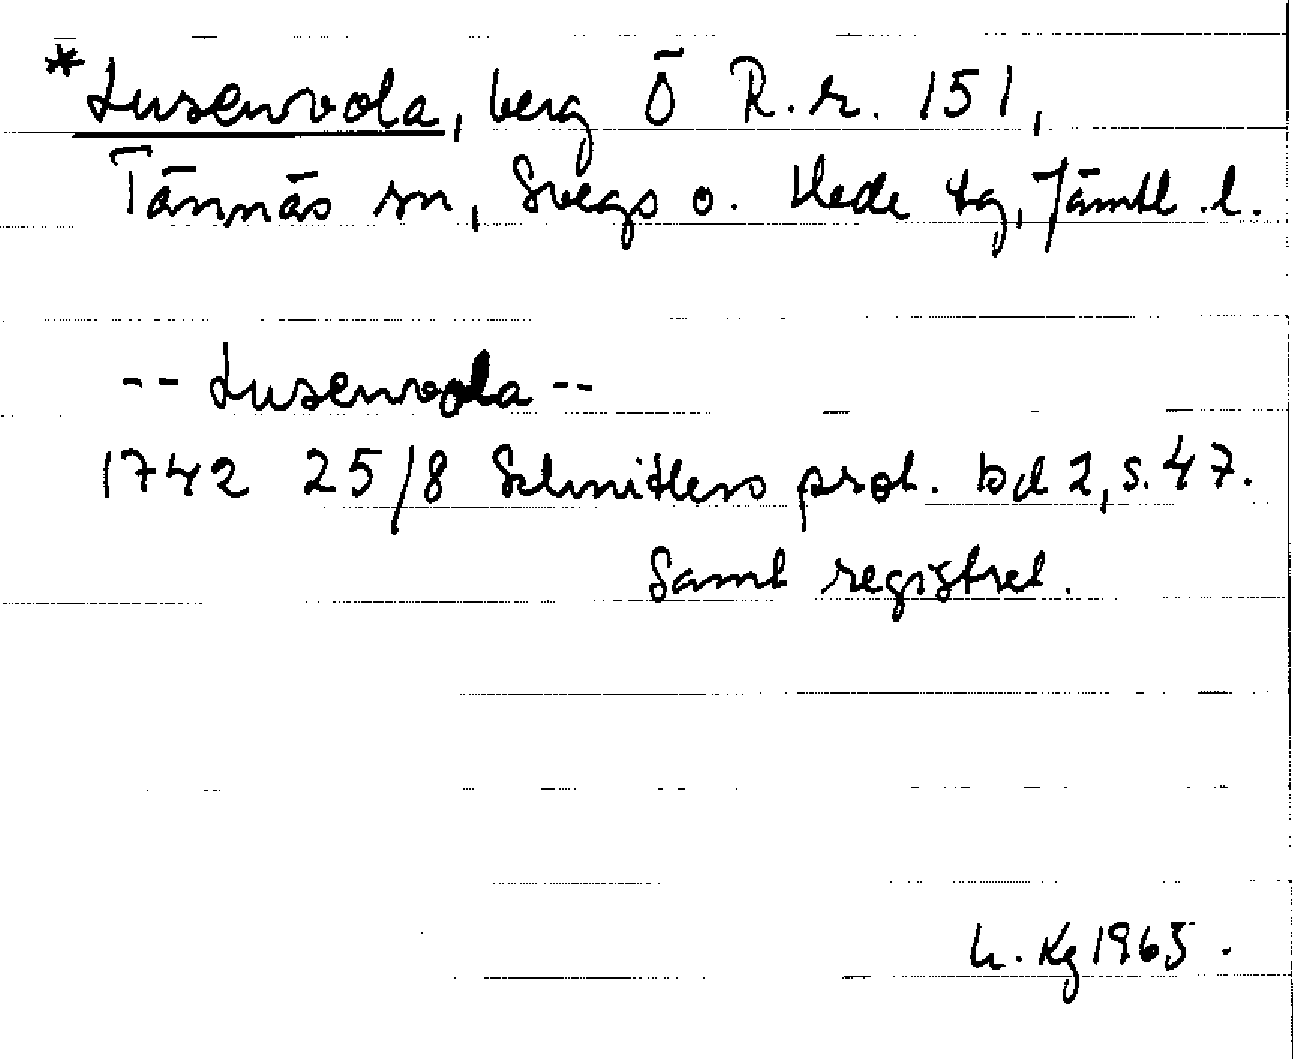 *Lusenvola, berg Ö R.r. 151,
Tännäs sn, Svegs o. Hede tg, Jämtl. l.
-- Lusenvola --
1742 25/8 Schnitlers prot. bd 2, s. 47.
Samt registret.
Kg 1965.